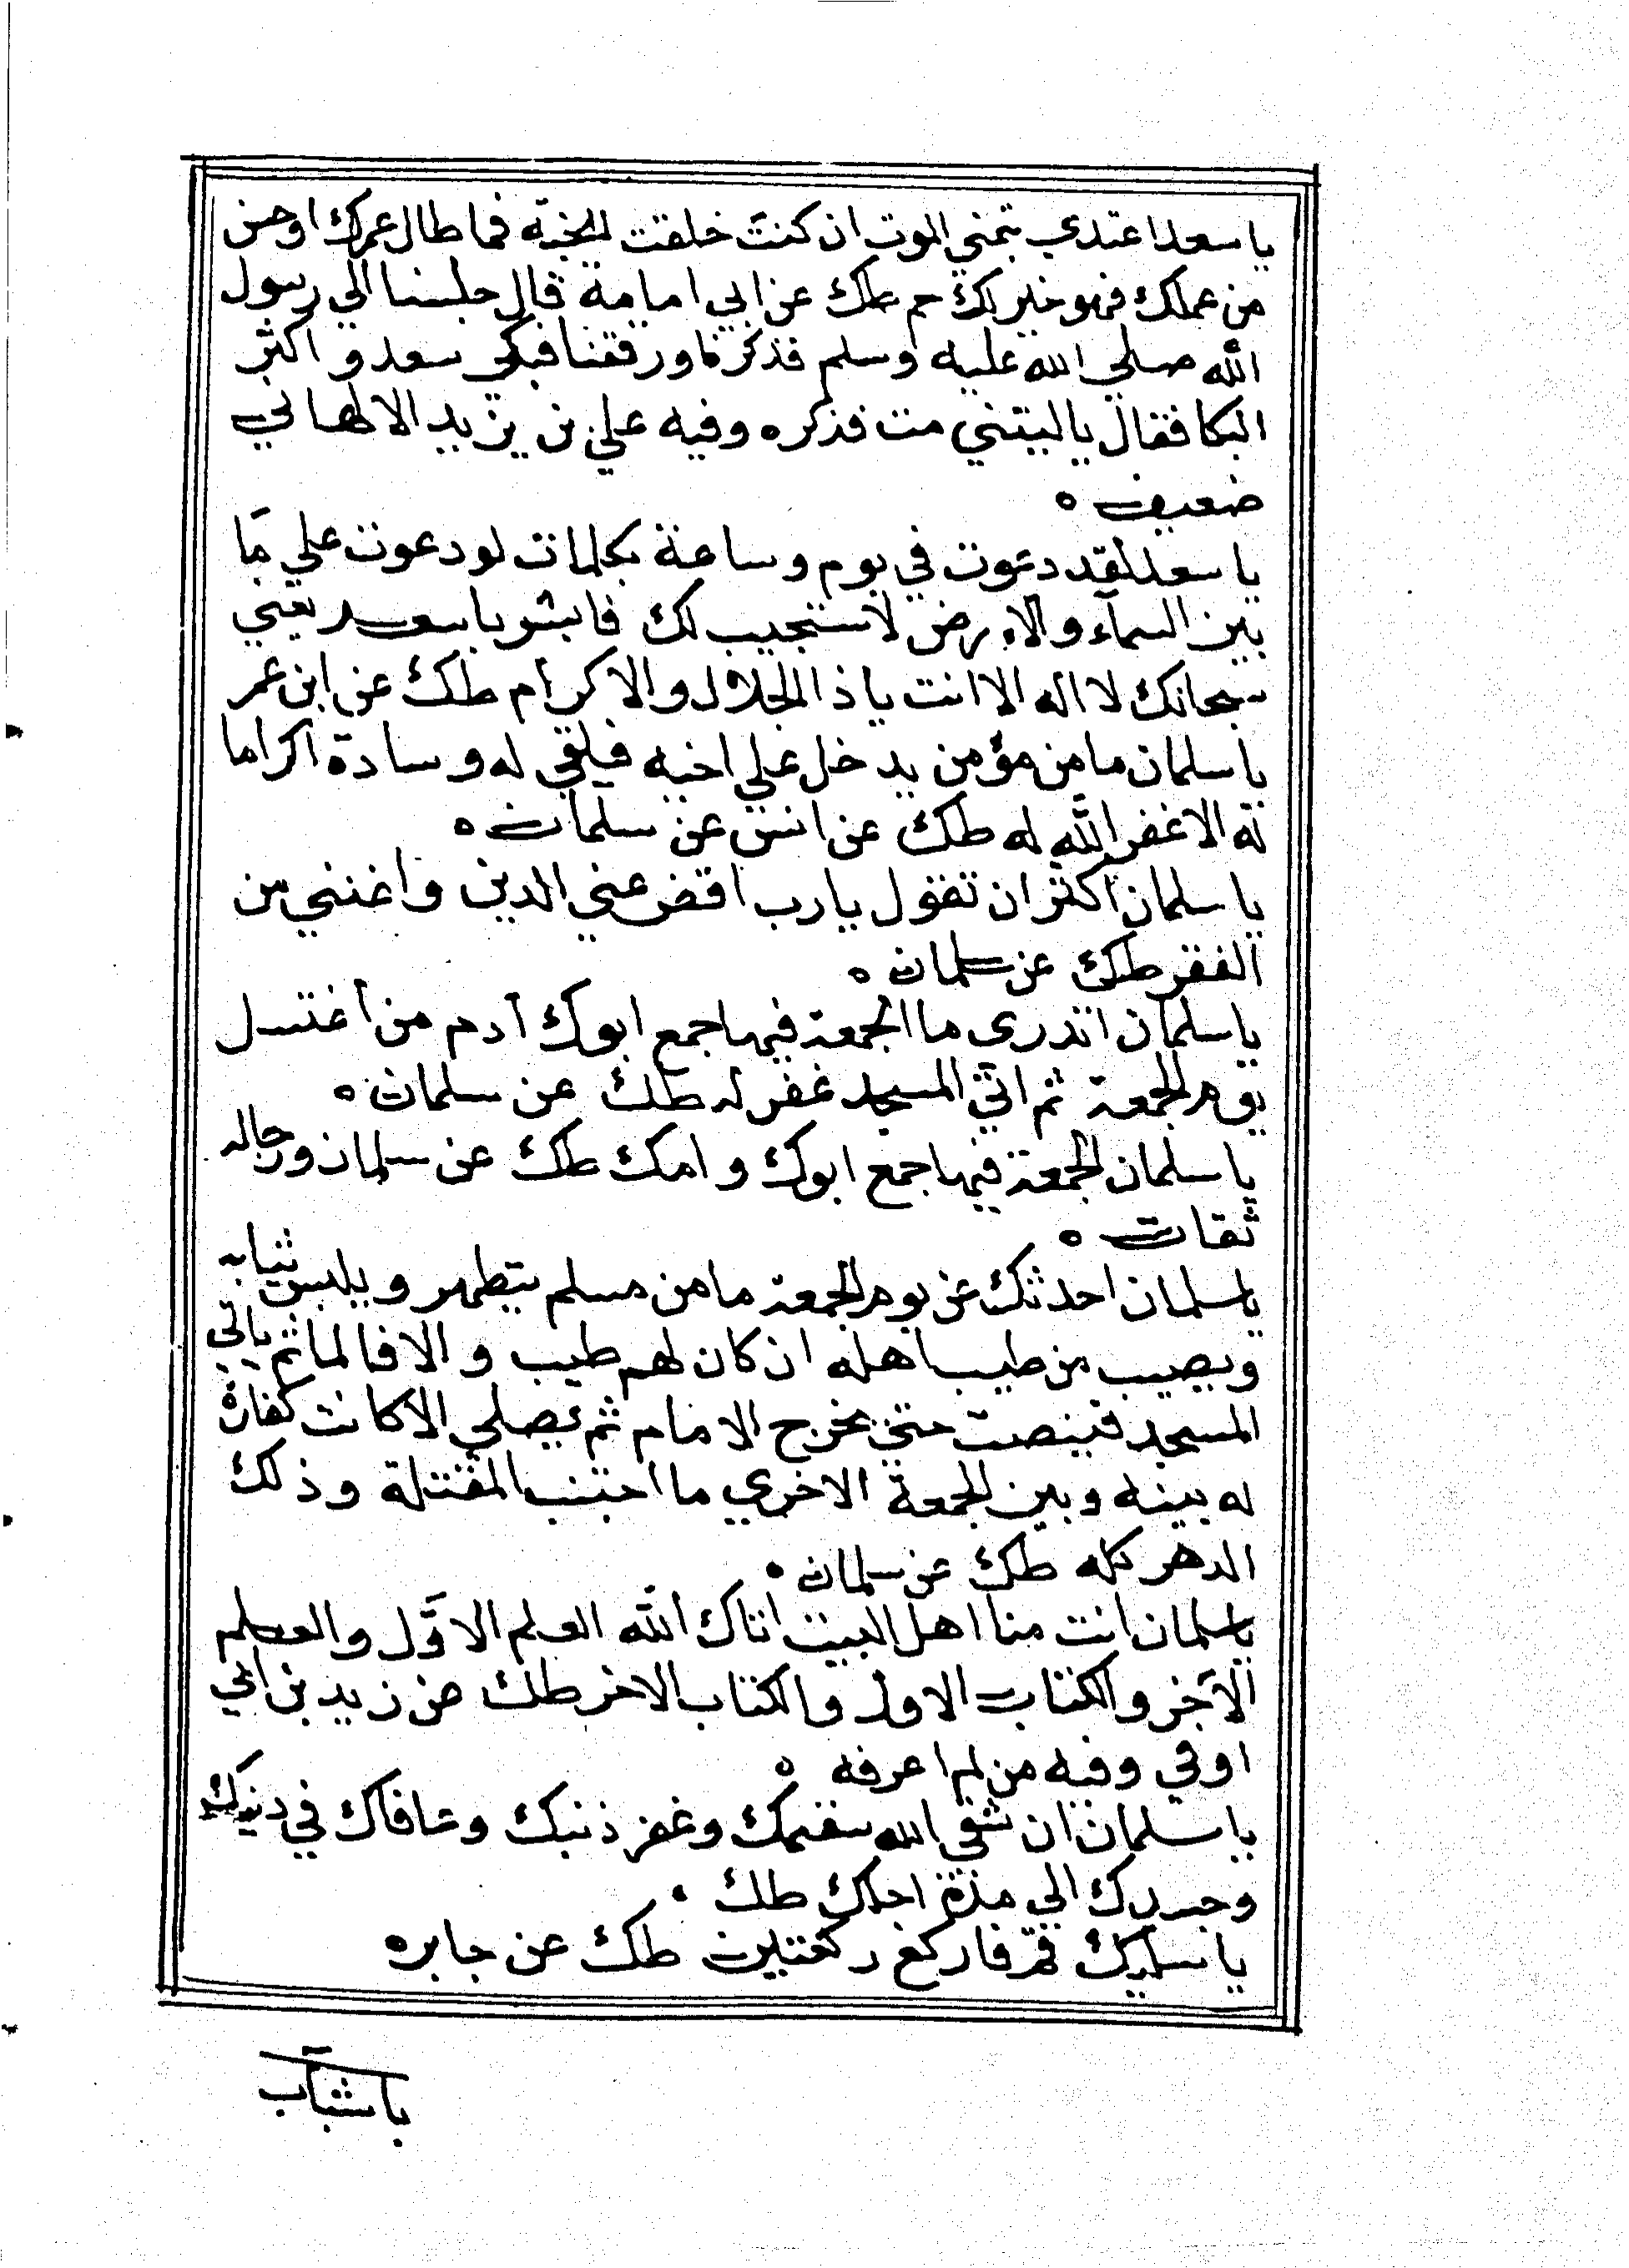 يا سعد اعتدي بتمني الموت ان كنت خلقت للجنة فما طال عمرك او حسن
من عملك فهو خير لك حم طك عن ابي امامة قال جلسنا الي رسول
الله صلي الله عليه وسلم فذكرنا ورققنا فبكي سعد و اكثر
البكا فقال ياليتني مت فذكره وفيه علي بن يزيد الالهاني
ضعيف ه
يا سعد لقد دعوت في يوم وساعة بكلمات لو دعوت علي ما
بين السمآء والارض لاستجيب لك فابشر يا سعد يعني
سبحانك لا اله الا انت يا ذا الجلال والاكرام طك عن ابن عمر
يا سلمان ما من مؤمن يدخل علي اخيه فيلقي له وسادة اكراما
له الا غفر الله له طك عن انس عن سلمان ه
يا سلمان اكثر ان تقول يا رب اقض عني الدين واغنني من
الفقر طك عن سلمان ه
يا سلمان اتدرى ما الجمعة فيها جمع ابوك آدم من أغتسل
يوم الجمعة ثم اتي المسجد غفر له طك عن سلمان ه
يا سلمان الجمعة فيها جمع ابوك وامك طك عن سلمان ورجاله
ثقات ه
يا سلمان احدثك عن يوم الجمعة ما من مسلم يتطهر ويلبس ثيابه
ويصيب من طيب اهله ان كان لهم طيب والا فالما ثم ياتي
المسجد فينصت حتي يخرج الامام ثم يصلي الا كانت كفارة
له بينه وبين الجمعة الاخري ما اجتنب المقتلة وذلك
الدهر كله طك عن سلمان ه
يا سلمان انت منا اهل البيت اتاك الله العلم الاوّل والعلم
الآخر والكتاب الاول والكتاب الاخر طك عن زيد بن ابي
اوفي وفيه من لم اعرفه ه
يا سلمان ان شفي الله سقمك وغفر ذنبك وعافاك في دينك
وجسدك الي مدة اجلك طك ه
يا سليك قم فاركع ركعتين طك عن جابر ه
يا شباب